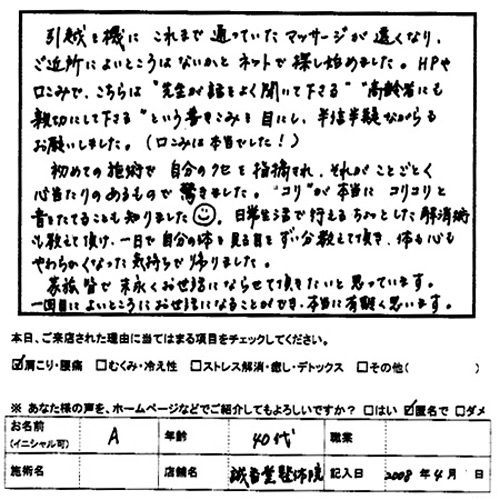 引越を機に これまで通っていたマッサージが遠くなり、
ご近所によいところはないかと ネットで探し始めました。HPや
口こみで、こちらは "先生が話をよく聞いて下さる" "高齢者にも
親切にして下さる" という書きこみを目にし、半信半疑ながらも
お願いしました。(口こみは本当でした!)
初めての施術で 自分のクセを指摘され、それがことごとく
心当たりのあるもので驚きました。"コリ"が本当に コリコリと
音をたてることも知りました☺。日常生活で行える ちょっとした解消術
も教えて頂け、一日で自分の体を見る目をずい分教えて頂き、体も心も
やわらかくなった気持ちで帰りました。
家族皆で 末永くお世話にならせて頂きたいと思っています。
一回目によいところにお世話になることができ、本当に有難く思います。
本日、ご来店された理由に当てはまる項目をチェックしてください。
☑肩こり・腰痛 □むくみ・冷え性 □ストレス解消・癒し・デトックス □その他( )
※ あなた様の声を、ホームページなどでご紹介してもよろしいですか? □はい ☑匿名で □ダメ
お名前 (イニシャル可) A 年齢 40代 職業
施術名 店舗名 整体院 記入日 2008年4月 日